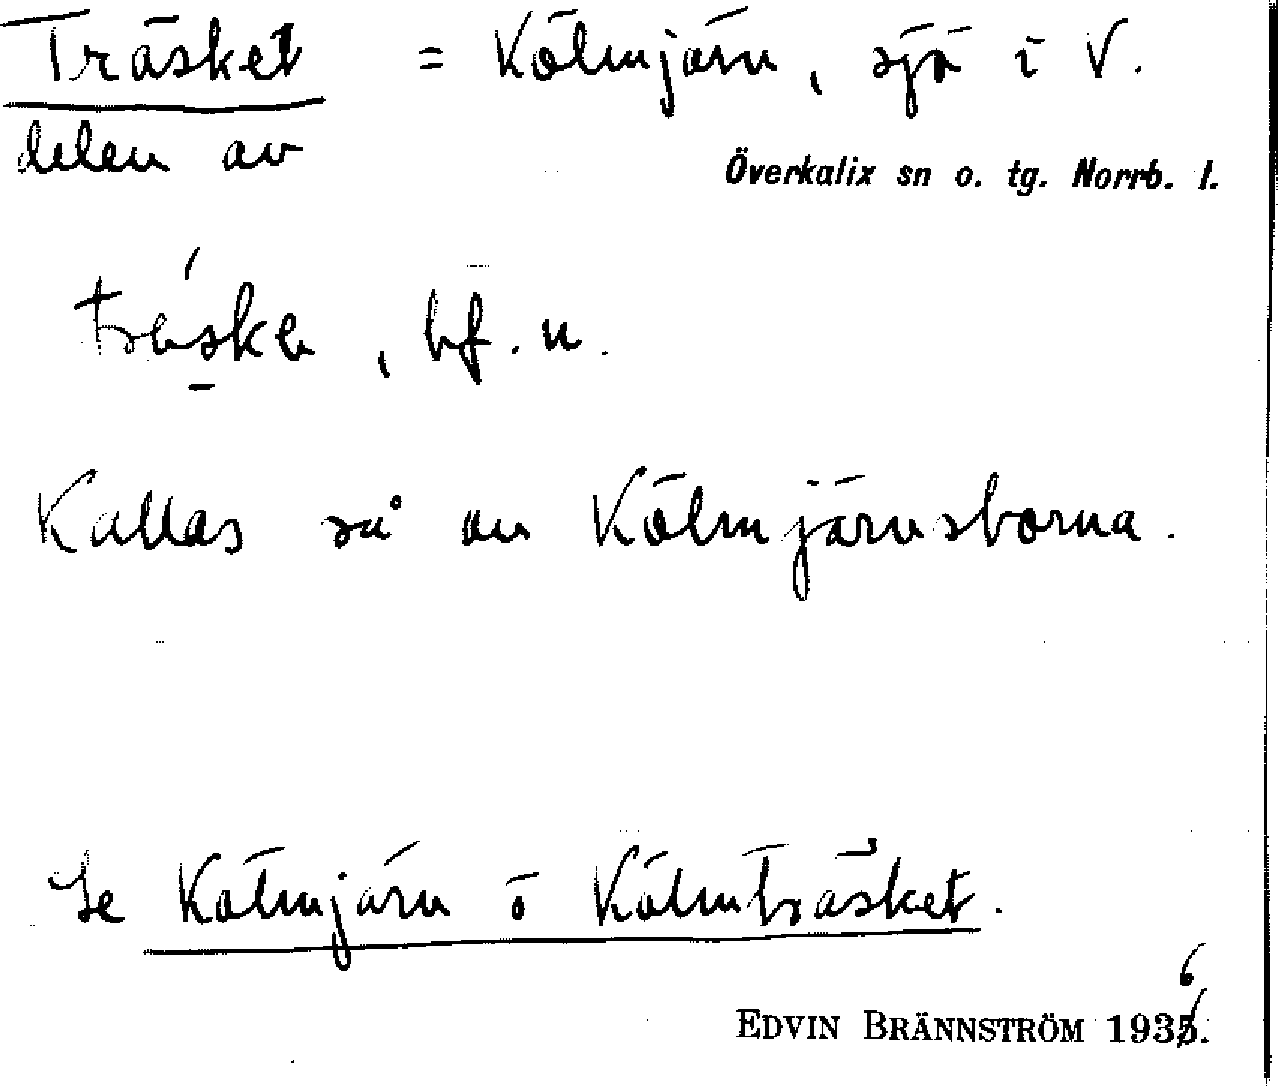 Träsket = Kölmjärn, sjö i V.
delen av
Överkalix sn o. tg. Norrb. l.
, bf. n.
Kallas så av Kölmjärnsborna.
Se Kölmjärn o Kölmträsket.
6
EDVIN BRÄNNSTRÖM 1935.